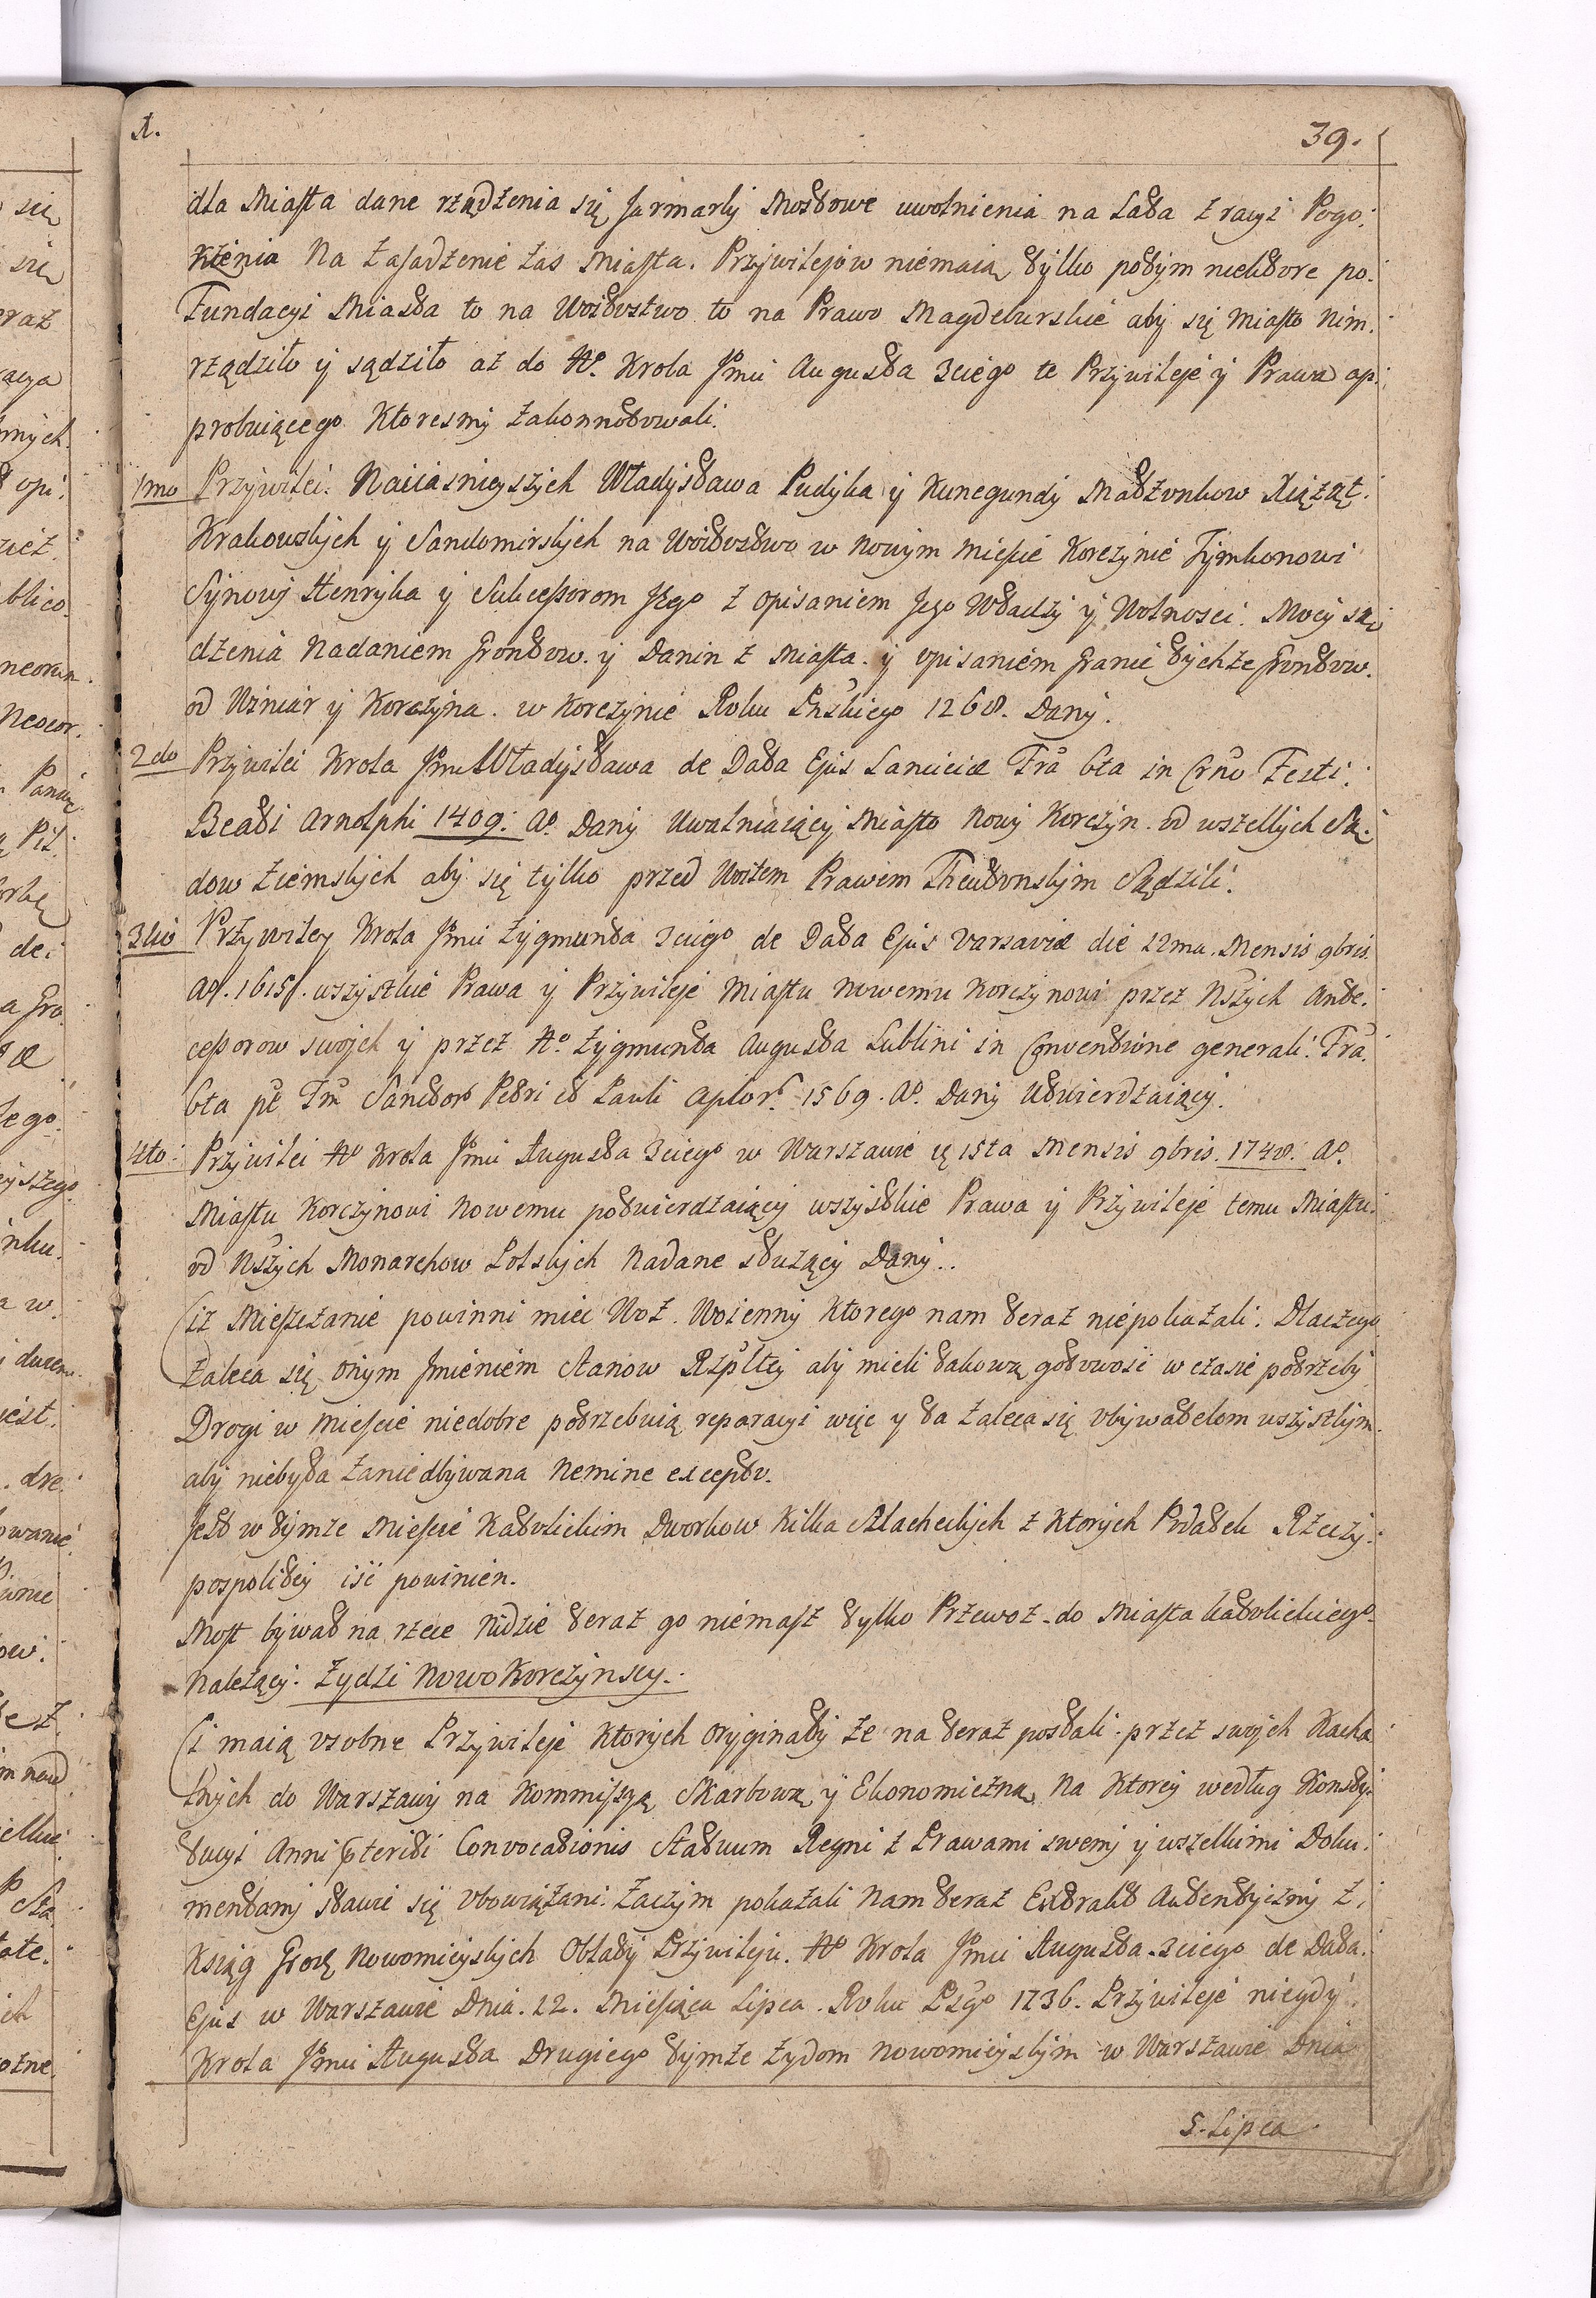 A.
39.
dla Miasta dane rządzenia się Jarmarky Mostowe uwolnienia na Lata z racyi Pogo:
rżenia Na zasadzenie zas Miasta. Przywilejow niemaią tylko potym niektore po:
Fundacyi Miasta to na Woitostwo to na Prawo Magdeburskie aby się Miasto Nim:
rządziło y sądziło aż do Ao. Krola Jmci Augusta 3ciego te Przywileje y Prawa ap:
probuiącego Ktoresmy zakonnotowali.
1mo Przywilei. Naiiasnieyszych Władysława Pudyka y Kunegundy Małżonkow Xiążąt:
Krakowskych y Sandomirskych na Woitostwo w nowym Miescie Korczynie Tymkonowi
Synowi Henryka y Sukcessorom Jego z opisaniem Jego Władzy y Wolnosci. Mocy są:
dzenia Nadaniem Grontow. y Danin z Miasta. y opisaniem Granic tychże Grontow.
od Winiar y Korczyna. w Korczynie Roku Pńskiego 1268. Dany.
2do Przywilei Krola Jmci Władysława de Data Ejus Lanciciæ Fra Gta in Crno Festi:
Beati Arnolphi 1409. Ao. Dany Uwalniaiący Miasto Nowy Korczyn. od wszelkych Są:
dow Ziemskych aby się tylko przed Woitem Prawem Theutonskym Sądzili.
3tio Przywiley Krola Jmci Zygmunta 3ciego de Data Ejus Varsaviæ die 12ma. Mensis 9bris.
Ao. 1615. wszystkie Prawa y Przywileje Miastu Nowemu Korczynowi przez Nszych Ante:
cessorow swojch y przez Ao. Zygmunta Augusta Lublini in Conventione generali. Fra
Gta pt Fm Sanctor Petri et Pauli Aplor. 1569. Ao. Dany Utwierdzaiący.
4to: Przywilei Ao Krola Jmci Augusta 3ciego w Warszawie d 15ta Mensis 9bris. 1748. Ao.
Miastu Korczynowi Nowemu potwierdzaiący wszystkie Prawa y Przywileje temu Miastu:
od Nszych Monarchow Polskych Nadane służący Dany..
Ciz Mieszczanie powinni mieć Woz. Woienny Ktorego nam teraz niepokazali. Dlaczego
Zaleca się onym Jmieniem Stanow Rzpltey aby mieli takową gotowość w czasie potrzeby
Drogi w Miescie niedobre potrzebuią reparacyi więc y ta zaleca się obywatelom wszystkym.
aby niebyła zaniedbywana Nemine excepto.
Jest w tymże Miescie Katolickim Dworkow Kilka Szlacheckych z Ktorych Podatek Rzeczy:
pospolitey iść powinien.
Most bywał na rzece Nidzie teraz go niemasz tylko Przewoz do Miasta katolickiego
Należący. Zydzi NowoKorczynscy.
Ci maią osobne Przywileje Ktorych Oryginały że na teraz posłali przez swojch Kacha
lnych do Warszawy na Kommissyą Skarbową y Ekonomiczną Na Ktorey według Konsty:
tucyi Anni Cteriti Convocationis Statuum Regni z Prawami swemi y wszelkimi Doku:
mentamy stawić się obowiązani. Zaczym pokazali Nam teraz Extrakt Autentyczny z
Ksiąg Grodz Nowomieyskych Oblaty Przywileju. Ao Krola Jmci Augusta 3ciego de Data:
Ejus w Warszawie Dnia. 22. Miesiąca Lipca. Roku Psgo 1736. Przywileje niegdy
Krola Jmci Augusta Drugiego tymże Zydom Nowomieyskym w Warszawie Dnia
5. Lipca